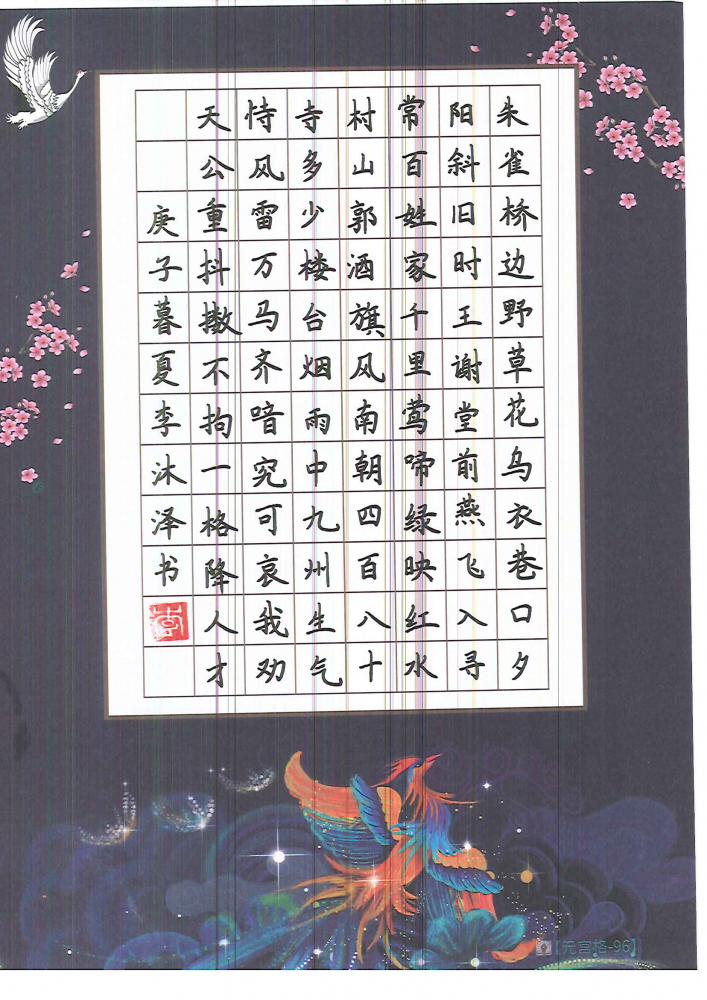 朱雀桥边野草花乌衣巷口夕
阳斜旧时王谢堂前燕飞入寻
常百姓家千里莺啼绿映红水
村山郭酒旗风南朝四百八十
寺多少楼台烟雨中九州生气
恃风雷万马齐喑究可哀我劝
天公重抖擞不拘一格降人才
庚子暮夏李沐泽书
【元宫格-96】